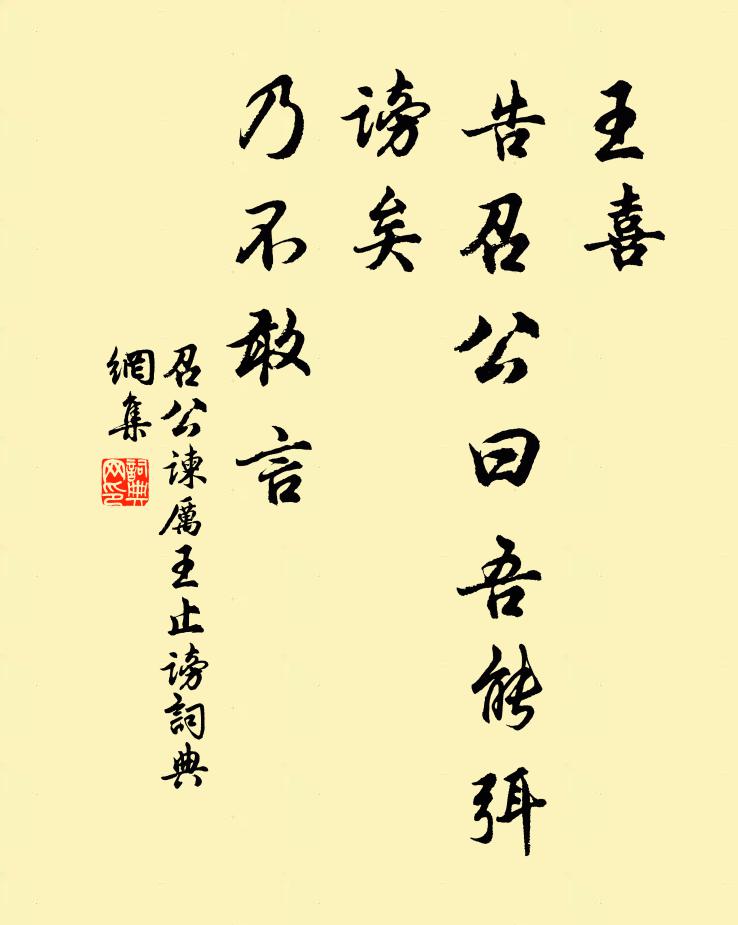 王喜
告召公曰吾能弭
謗矣
乃不敢言
召公諫厲王止謗詞典
網集
詞典
网印